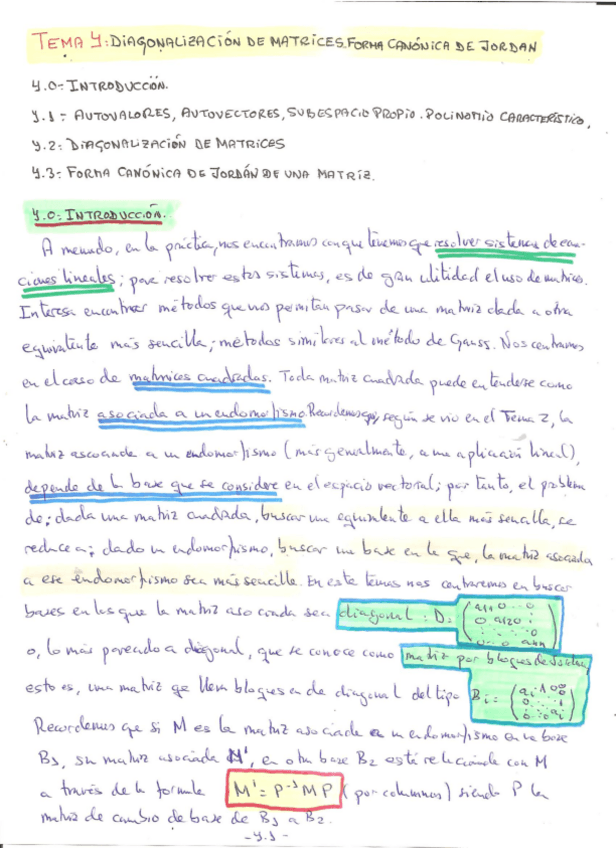 TEMA 4: DIAGONALIZACIÓN DE MATRICES. FORMA CANÓNICA DE JORDAN
4.0- INTRODUCCIÓN.
4.1- AUTOVALORES, AUTOVECTORES, SUBESPACIO PROPIO. POLINOMIO CARACTERÍSTICO.
4.2- DIAGONALIZACIÓN DE MATRICES
4.3- FORMA CANÓNICA DE JORDÁN DE UNA MATRIZ.
4.0- INTRODUCCIÓN.
A menudo, en la práctica, nos encontramos con que tenemos que resolver sistemas de ecua-
ciones lineales; para resolver estos sistemas, es de gran utilidad el uso de matrices.
Interesa encontrar métodos que nos permitan pasar de una matriz dada a otra
equivalente más sencilla; métodos similares al método de Gauss. Nos centramos
en el caso de matrices cuadradas. Toda matriz cuadrada puede entenderse como
la matriz asociada a un endomorfismo. Recordemos que, según se vio en el Tema 2, la
matriz asocoada a un endomorfismo (más generalmente, a una aplicación lineal),
depende de la base que se considere en el espacio vectorial; por tanto, el problem
de; dada una matriz cuadrada, buscar una equivalente a ella más sencilla, se
reduce a; dado un endomorfismo, buscar una base en la que, la matriz asociada
a ese endomorfismo sea más sencilla. En este temas nos centraremos en buscar
bases en las que la matriz asociada sea diagonal: D=
o, lo más parecido a diagonal, que se conoce como matriz por bloques de Jordan,
esto es, una matriz qe lleva bloques en la diagonal del tipo Bi=
Recordemos que si M es la matriz asociada a un endomorfismo en una base
B1, su matriz asociada M', en otra base B2 está relacionada con M
a través de la formula M' = P⁻¹MP (por columnas) siendo P la
matriz de cambio de base de B1 a B2.
-4.1-